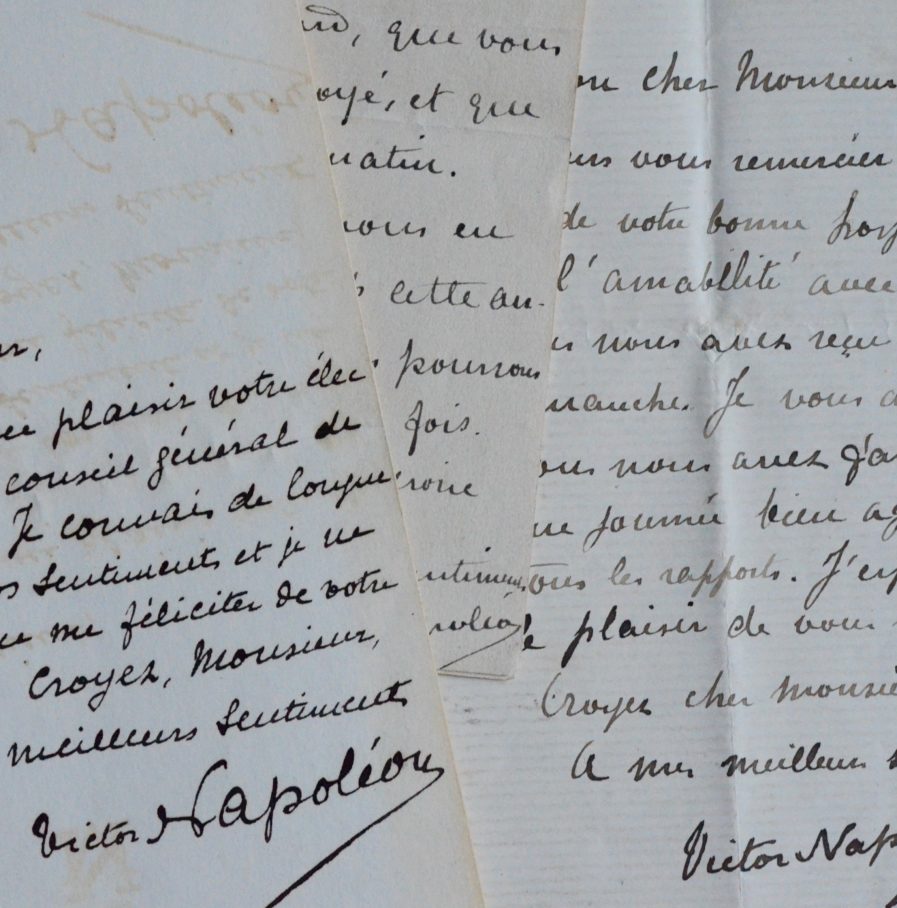 ur,
plaisir votre élec
conseil général de
Je connais de longue
sentiments et je ne
me féliciter de votre
Croyez, Monsieur,
meilleurs sentiments
Victor Napoléon
que vous
oyé, et que
matin.
nous en
cette an-
pourrons
fois.
ntiments
poléon
on cher Monsieur
vous remercier
de votre bonne
l'amabilité avec
nous avez reçu
manche. Je vous
nous avez fai
journée bien ag
tous les rapports. J'esp
le plaisir de vous
Croyez cher Monsie
A mes meilleurs s
Victor Nap